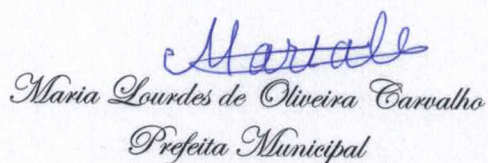 Maria Lourdes de Oliveira Carvalho
Prefeita Municipal